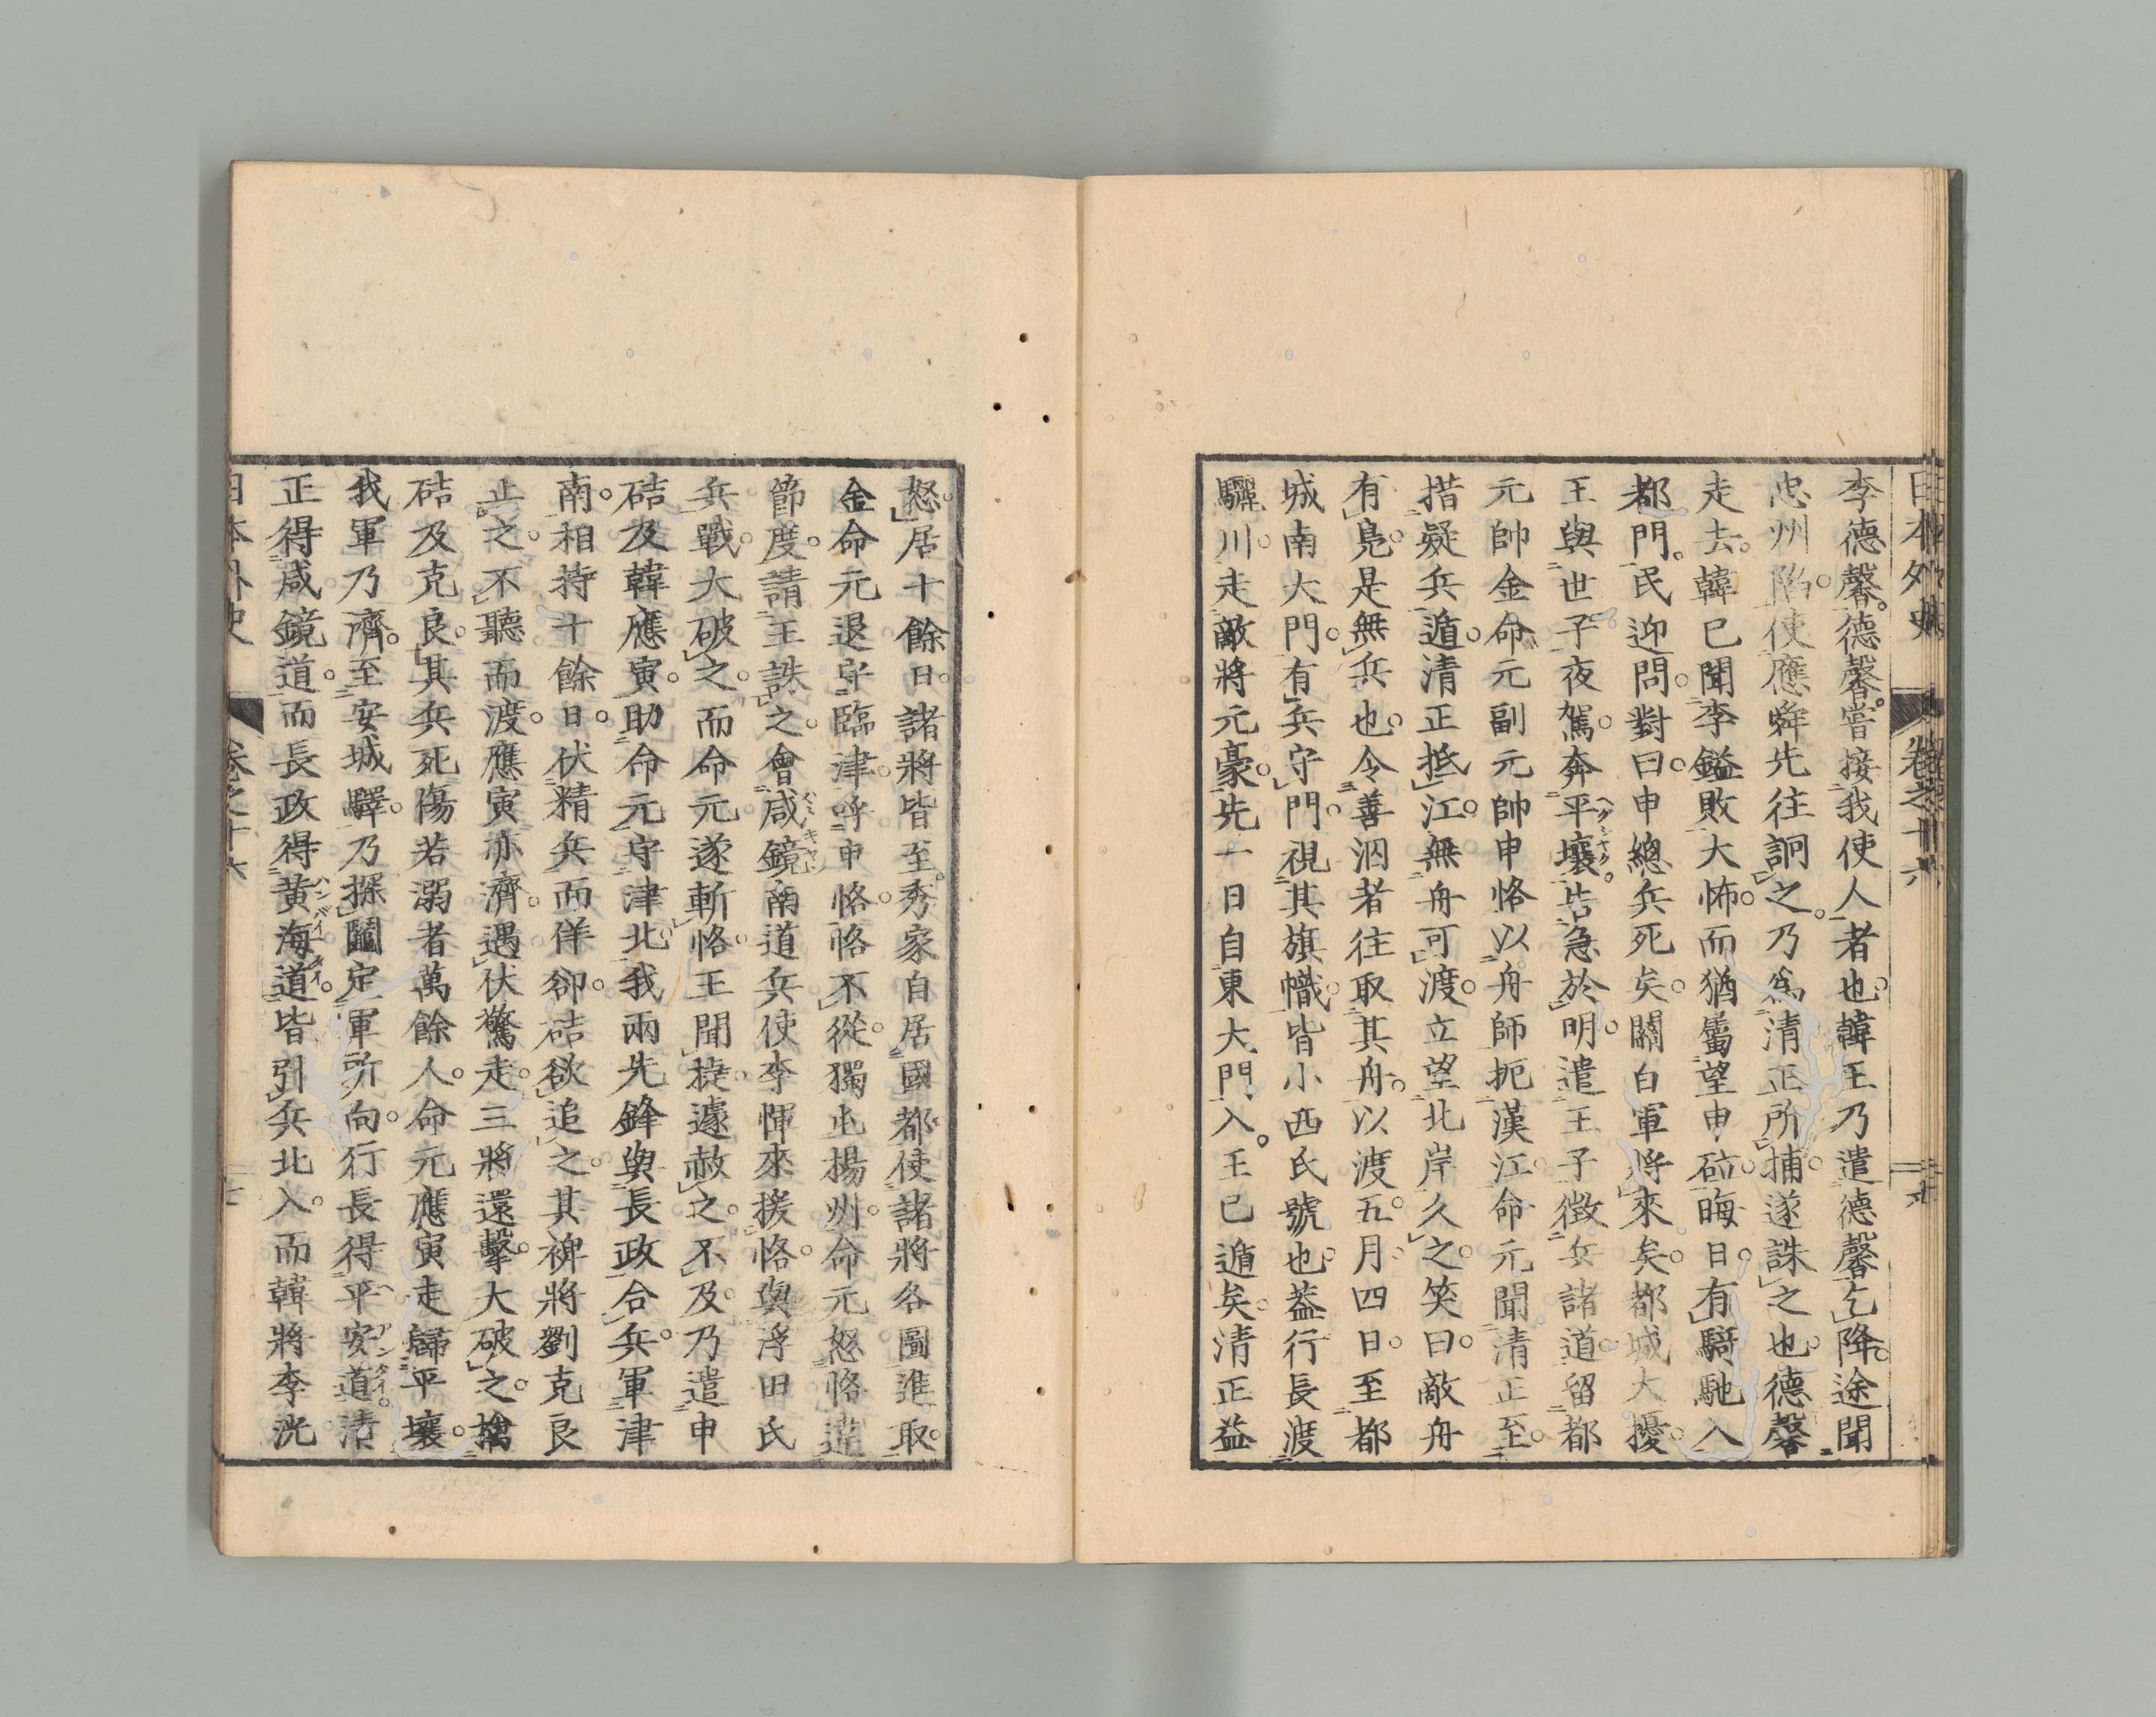 日本外史 卷之十六
李德馨。德馨嘗接我使人者也。韓王乃遣德馨乞降。途聞
忠州陷。使應舜先往詗之。乃爲清正所捕。遂誅之也。德馨
走去。韓已聞李鎰敗大怖。而猶屬望申砬。晦日有騎馳入
都門。民迎問。對曰。申總兵死矣。關白軍將來矣。都城大擾。
王與世子夜駕。奔平壤。告急於明。遣王子徵兵諸道。留都
元帥金命元副元帥申恪以舟師扼漢江。命元聞清正至。
措疑兵遁。清正抵江。無舟可渡。立望北岸久之。笑曰。敵舟
有鳧。是無兵也。令善泅者往取其舟。以渡。五月四日。至都
城南大門。有兵守門。視其旗幟。皆小西氏號也。蓋行長渡
驪川。走敵將元豪。先一日自東大門入。王已遁矣。清正益
怒。居十餘日。諸將皆至。秀家自居國都。使諸將各圖進取。
金命元退守臨津。呼申恪。恪不從。獨屯揚州。命元怒恪違
節度。請王誅之。會咸鏡南道兵使李惲來援。恪與浮田氏
兵戰。大破之。而命元遂斬恪。王聞捷。遽赦之。不及。乃遣申
硈及韓應寅。助命元守津北。我兩先鋒與長政合兵。軍津
南。相持十餘日。伏精兵而佯卻。硈欲追之。其裨將劉克良
止之。不聽而渡。應寅亦濟。遇伏驚走。三將還擊。大破之。擒
硈及克良。其兵死傷若溺者萬餘人。命元應寅走歸平壤。
我軍乃濟。至安城驛。乃探鬮定軍所向。行長得平安道。清
正得咸鏡道。而長政得黃海道。皆引兵北入。而韓將李洸
日本外史 卷之十六